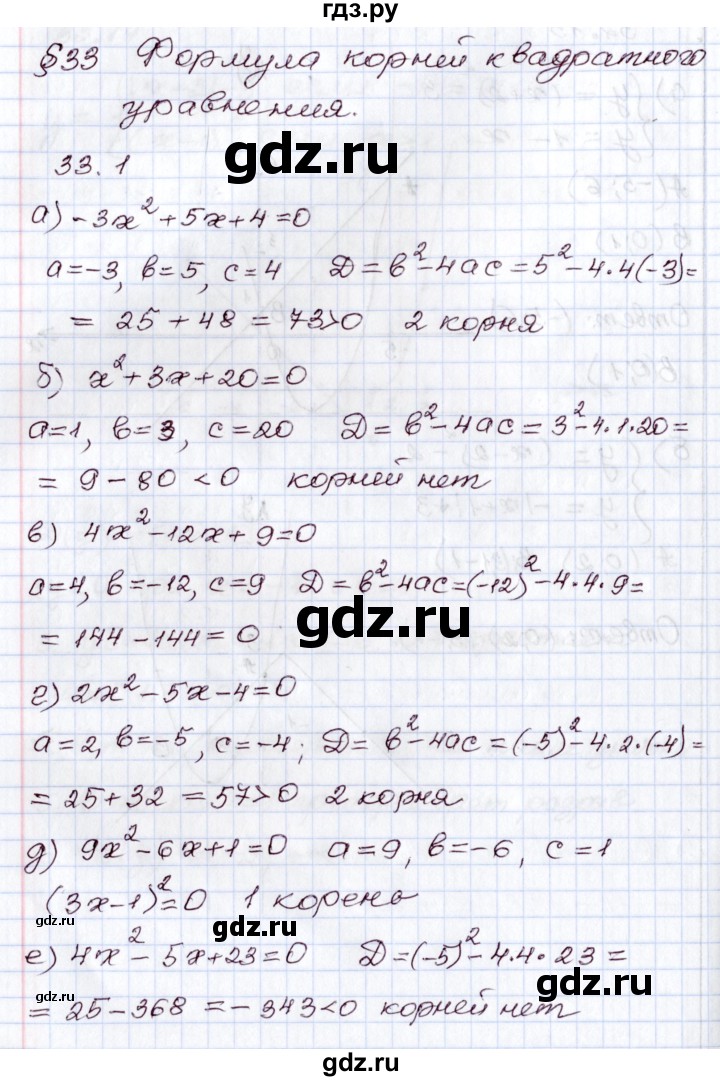 гдз.ру
§33 Формула корней квадратного
уравнения.
gdz.ru
33.1
а) -3x² + 5x + 4 = 0
a = -3, b = 5, c = 4 D = b² - 4ac = 5² - 4·4(-3) =
= 25 + 48 = 73 > 0 2 корня
gdz.ru
б) x² + 3x + 20 = 0
a = 1, b = 3, c = 20 D = b² - 4ac = 3² - 4·1·20 =
gdz.ru
= 9 - 80 < 0 корней нет
в) 4x² - 12x + 9 = 0
a = 4, b = -12, c = 9 D = b² - 4ac = (-12)² - 4·4·9 =
= 144 - 144 = 0
gdz.ru
г) 2x² - 5x - 4 = 0
a = 2, b = -5, c = -4; D = b² - 4ac = (-5)² - 4·2·(-4) =
= 25 + 32 = 57 > 0 2 корня
gdz.ru
д) 9x² - 6x + 1 = 0 a = 9, b = -6, c = 1
(3x - 1)² = 0 1 корень
gdz.ru
gdz.ru
е) 4x² - 5x + 23 = 0 D = (-5)² - 4·4·23 =
gdz.ru
= 25 - 368 = -343 < 0 корней нет
gdz.ru